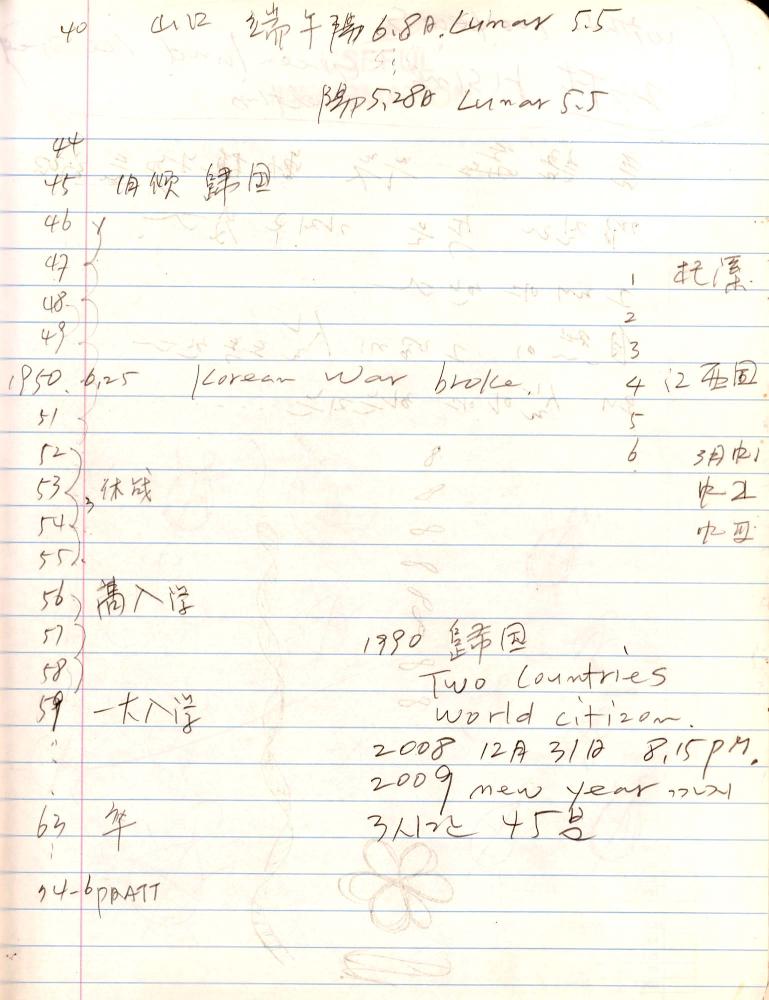 40 山口 端午 陽 6.8日. Lunar 5.5
陽 5.28日 Lunar 5.5
44
45 歸国
46
47
1
48
2
49
3
1950. 6.25 Korean War broke. 4
51
5
52
6 3月 中1
53 休战 中2
54 中3
55
56 高入学
57
1990 歸国
58
Two Countries
59 一大入学
World citizen.
2008 12月 31日 8.15 PM.
2009 new year 까지
63 卒
3시간 45분
74-6 PRATT